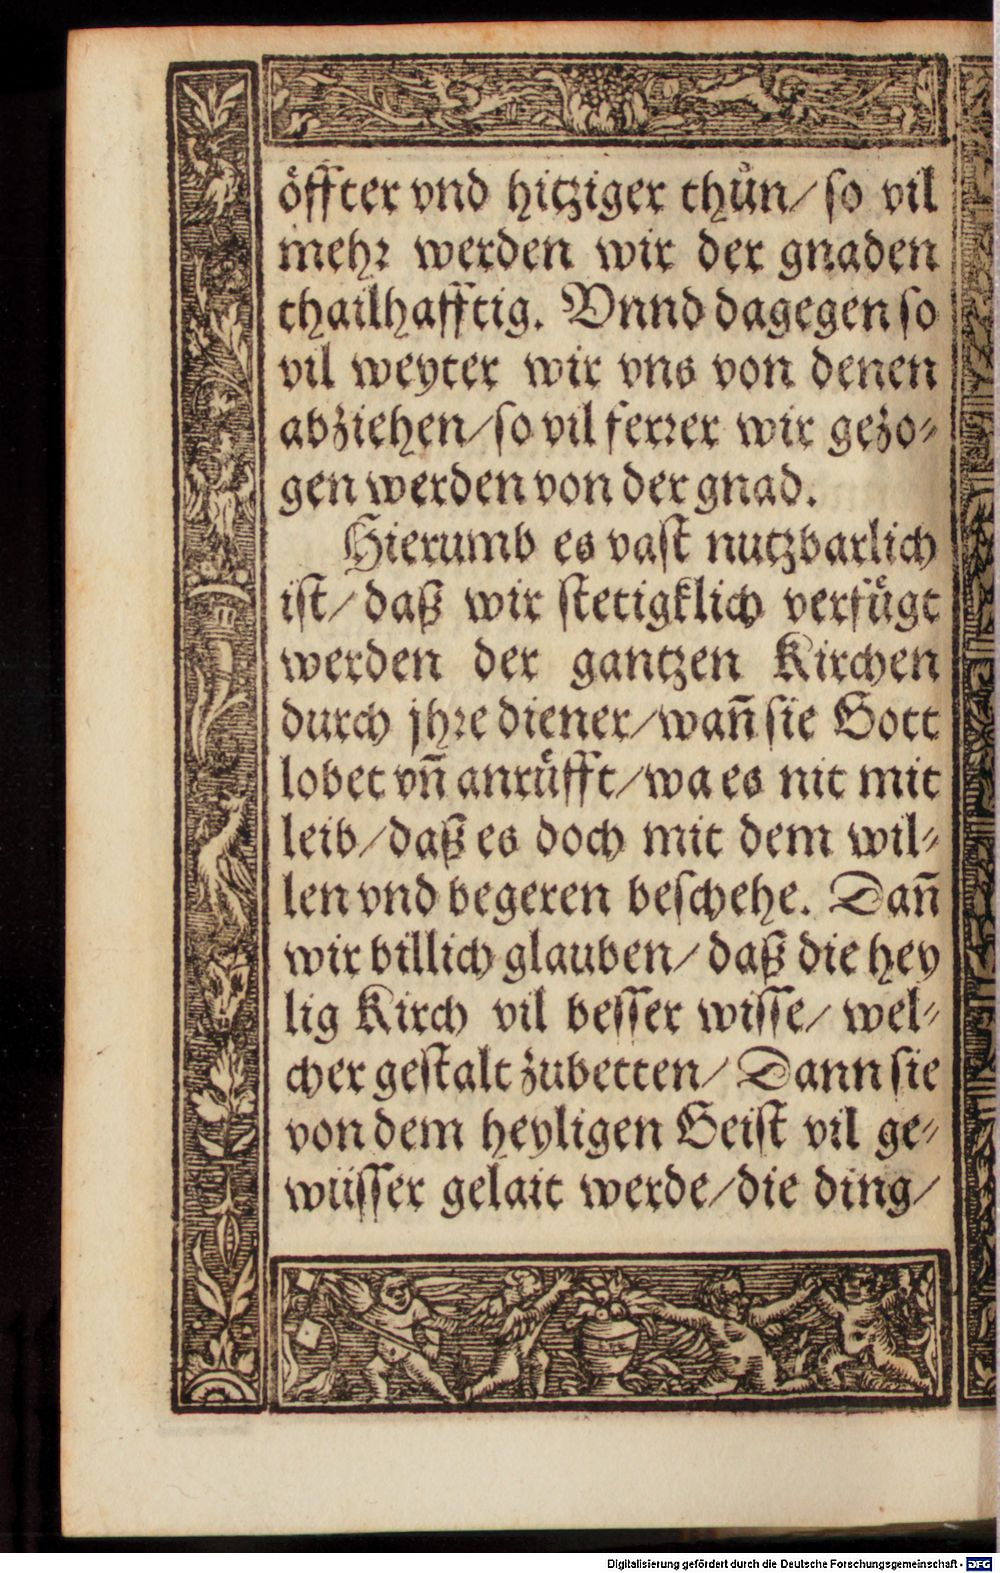 öffter vnd hitziger thůn/ so vil
mehr werden wir der gnaden
thailhafftig. Vnnd dagegen so
vil weyter wir vns von denen
abziehen/ so vil ferrer wir gezo-
gen werden von der gnad.
Hierumb es vast nutzbarlich
ist/ daß wir stetigklich verfůgt
werden der gantzen Kirchen
durch jhre diener/ wañ sie Gott
lobet vñ anrůfft/ wa es nit mit
leib/ daß es doch mit dem wil-
len vnd begeren beschehe. Dañ
wir billich glauben/ daß die hey
lig Kirch vil besser wisse/ wel-
cher gestalt zubetten/ Dann sie
von dem heyligen Geist vil ge-
wüsser gelait werde/ die ding/
Digitalisierung gefördert durch die Deutsche Forschungsgemeinschaft - DFG